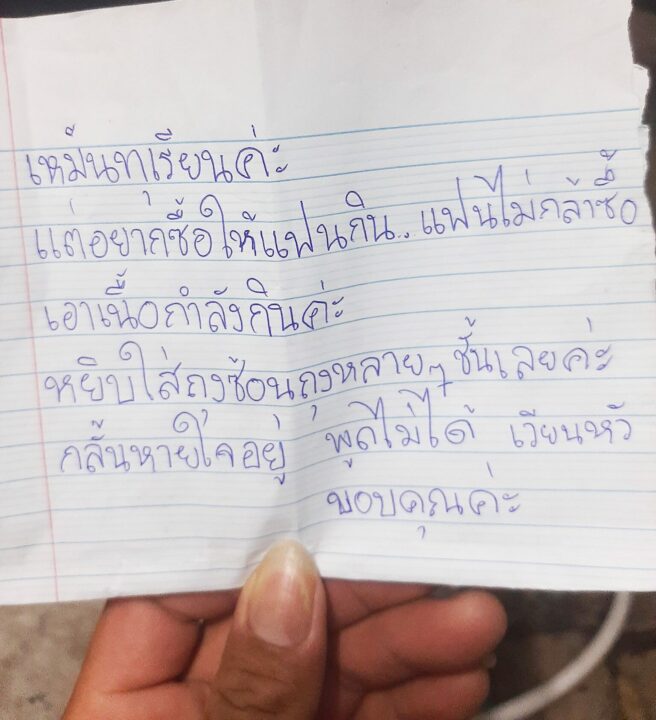 เหม็นทุเรียนค่ะ
แต่อยากซื้อให้แฟนกิน.. แฟนไม่กล้าซื้อ
เอาเนื้อกำลังกินค่ะ
หยิบใส่ถุงซ้อนถุงหลายๆ ชั้นเลยค่ะ
กลั้นหายใจอยู่ พูดไม่ได้ เวียนหัว
ขอบคุณค่ะ